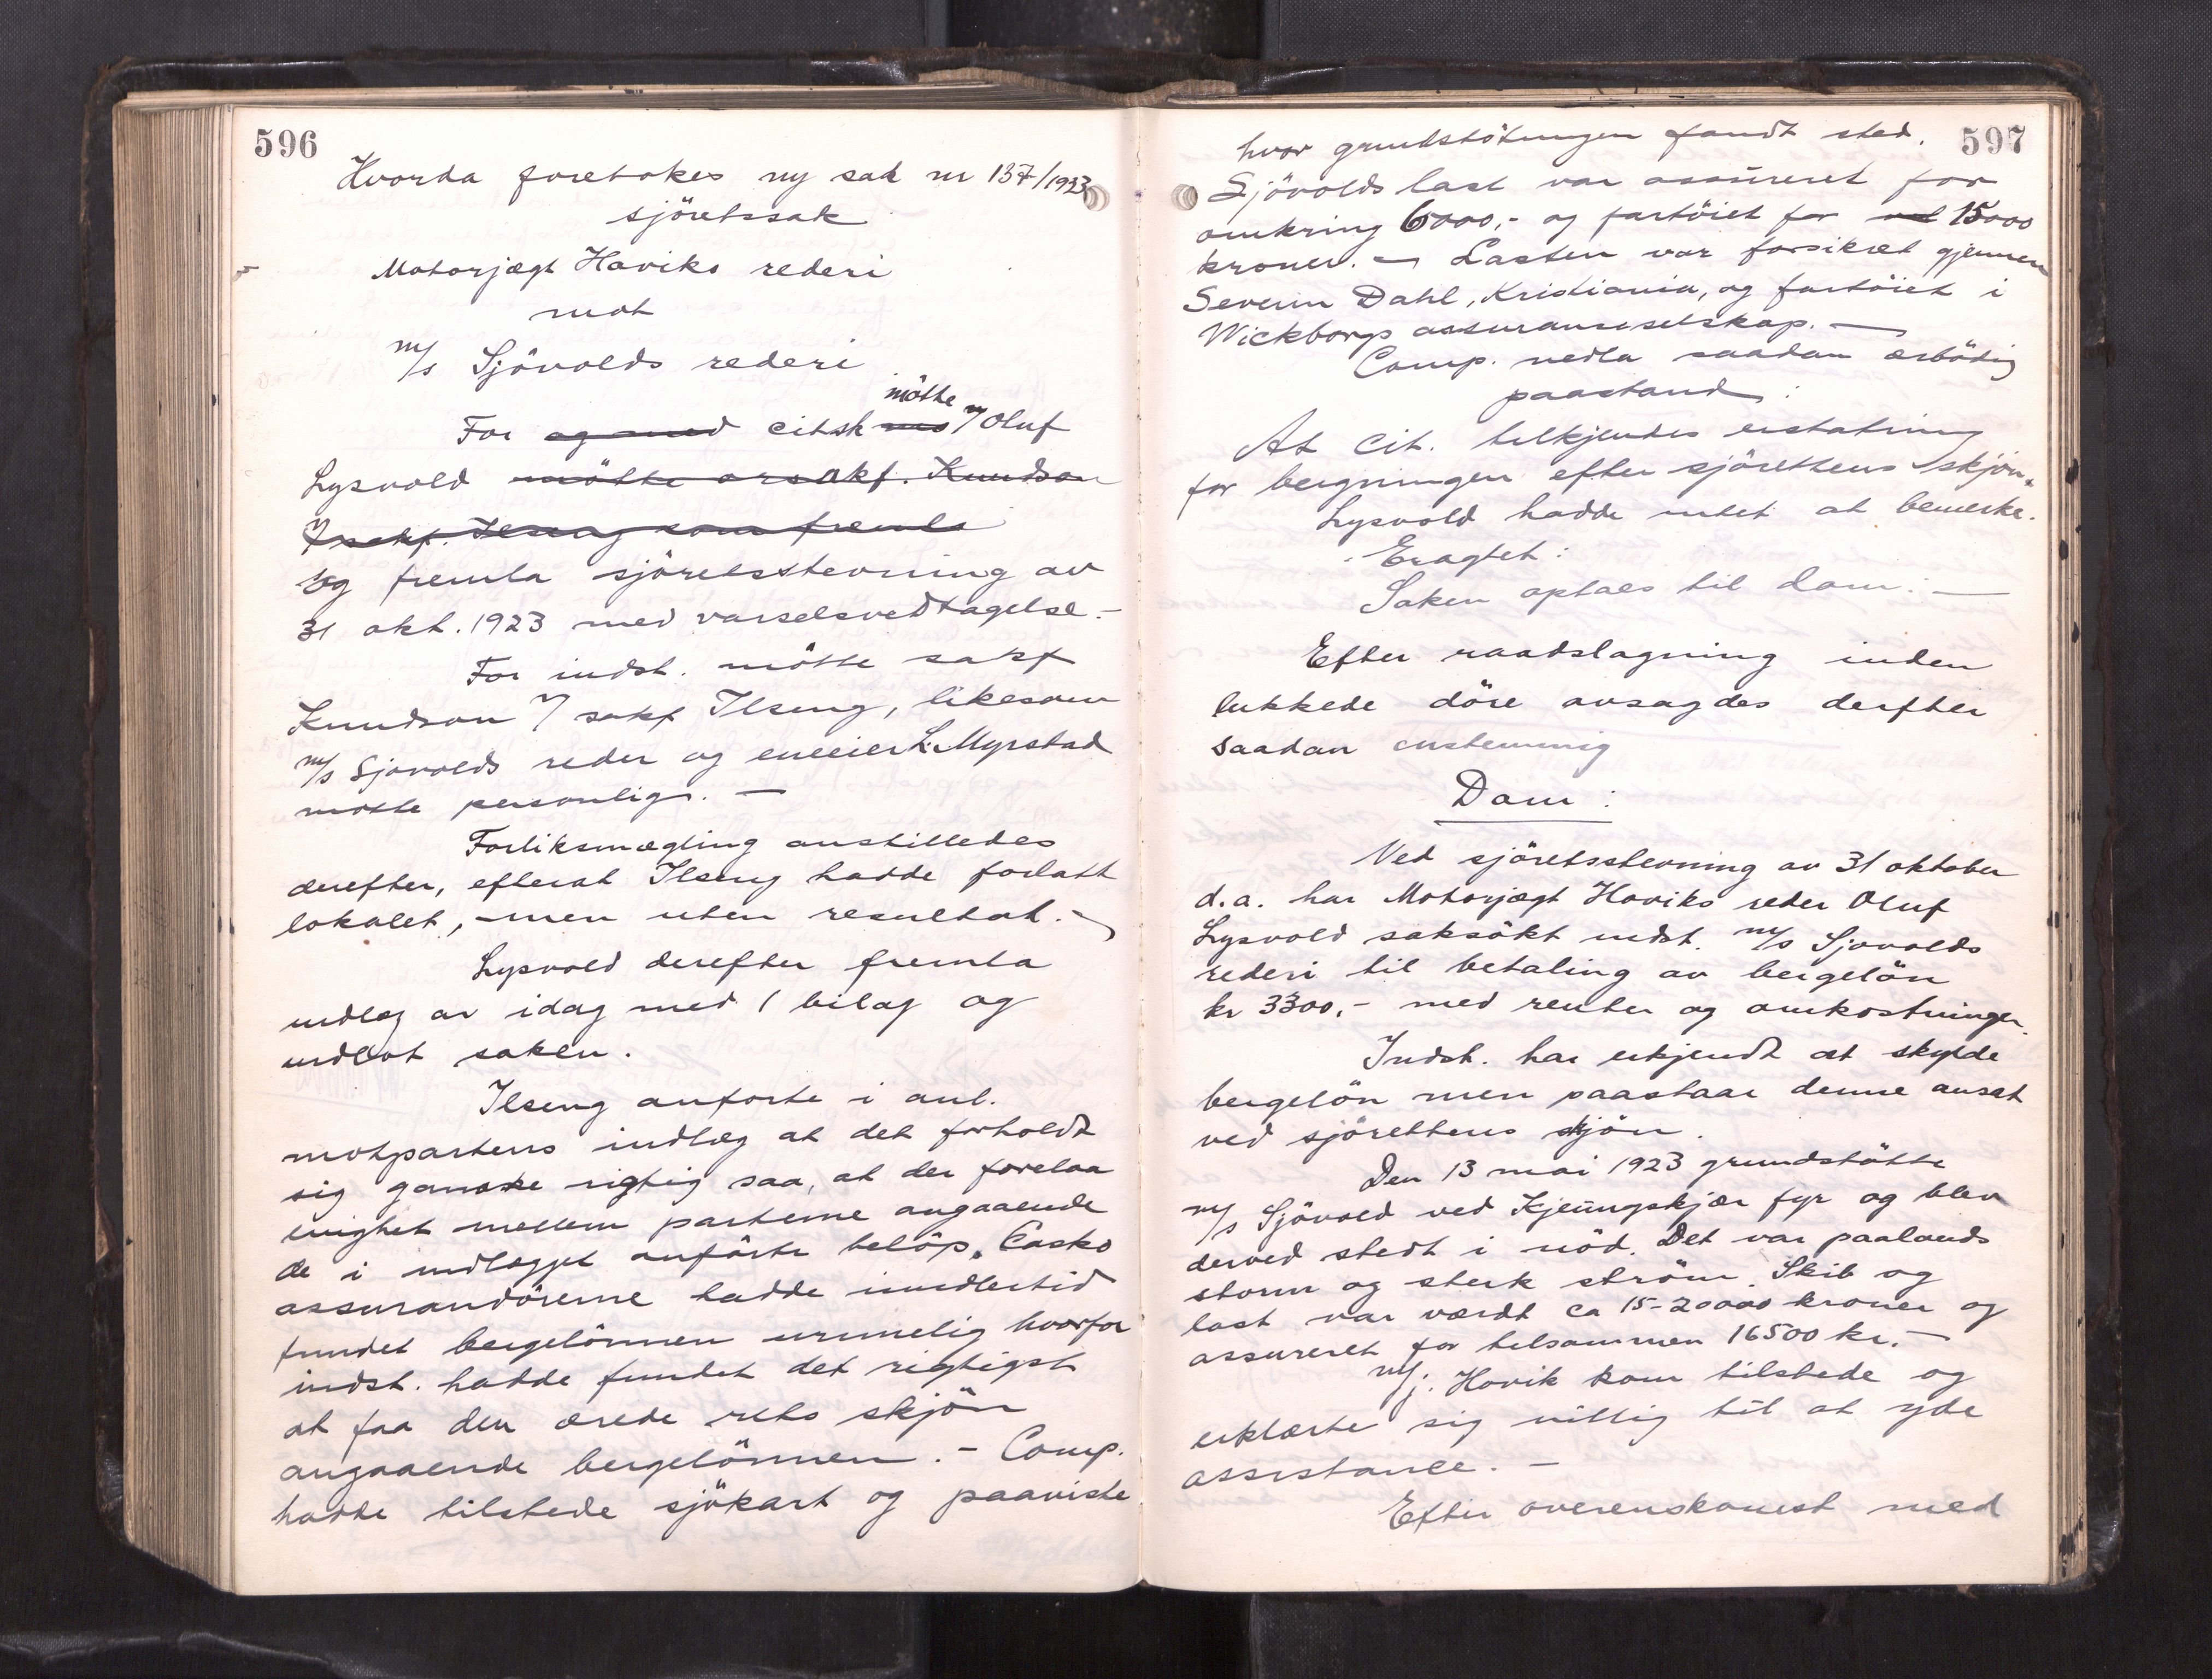 596
Hvorda foretokes ny sak nr 137/1923
sjöretssak
Motorjægt Haviks rederi
mot
m/s Sjövolds rederi
mötte
For og med citsk mö v/ Oluf
Lysvold mötte orsakf. Knudson
v/ sakf. Ilseng som fremla
og fremla sjöretsstevning av
31 okt. 1923 med varselsvedtagelse. -
For indst. mötte sakf
Knudson v/ sakf Ilseng, likesom
m/s Sjovolds reder og eneeier L. Myrstad
motte personlig. —
Forliksmægling anstilledes
derefter, efterat Ilseng hadde forlatt
lokalet, - men uten resultat. -
Lysvold derefter fremla
indlæg av idag med 1 bilag og
indlot saken.
Ilseng anforte i anl.
motpartens indlæg at det forholdt
sig ganske rigtig saa, at der forelaa
enighet mellem parterne angaaende
de i indlægget anförte belöp. Casko
assurandörerne hadde imidlertid
fundet bergelönnen urimelig hvorfor
indst. hadde fundet det rigtigst
at faa den ærede rets skjön
angaaende bergelönnen. - Comp.
hadde tilstede sjökart og paaviste
597
hvor grundstötningen fandt sted.
Sjövolds last var assureret for
omkring 6000,- og fartöiet for 15000
kroner. - Lasten var forsikret gjennem
Severin Dahl, Kristiania, og fartöiet i
Wickborgs assuranseselskap. —
Comp. nedla saadan ærbödig
paastand:
At cit. tilkjendes erstatning
for bergningen efter sjörettens skjön.
Lysvold hadde intet at bemerke.
Eragtet:
Saken optaes til dom. —
Efter raadslagning inden
lukkede döre avsagdes derfter
saadan enstemmig
Dom:
Ved sjöretsstevning av 31 oktober
d.a. har Motorjægt Haviks reder Oluf
Lysvold saksökt indst. m/s Sjovolds
rederi til betaling av bergelön
kr 3300,- med renter og omkostninger.
Indst. har erkjendt at skylde
bergelön men paastaar denne ansat
ved sjörettens skjön.
Den 13 mai 1923 grundstötte
m/s Sjövold ved Kjeungskjær fyr og blev
derved stedt i nöd. Det var paalands
storm og sterk ström. Skib og
last var værdt ca 15-20000 kroner og
assureret for tilsammen 16500 kr. -
m/j. Havik kom tilstede og
erklærte sig villig til at yde
assistance. -
Efter overenskomst med